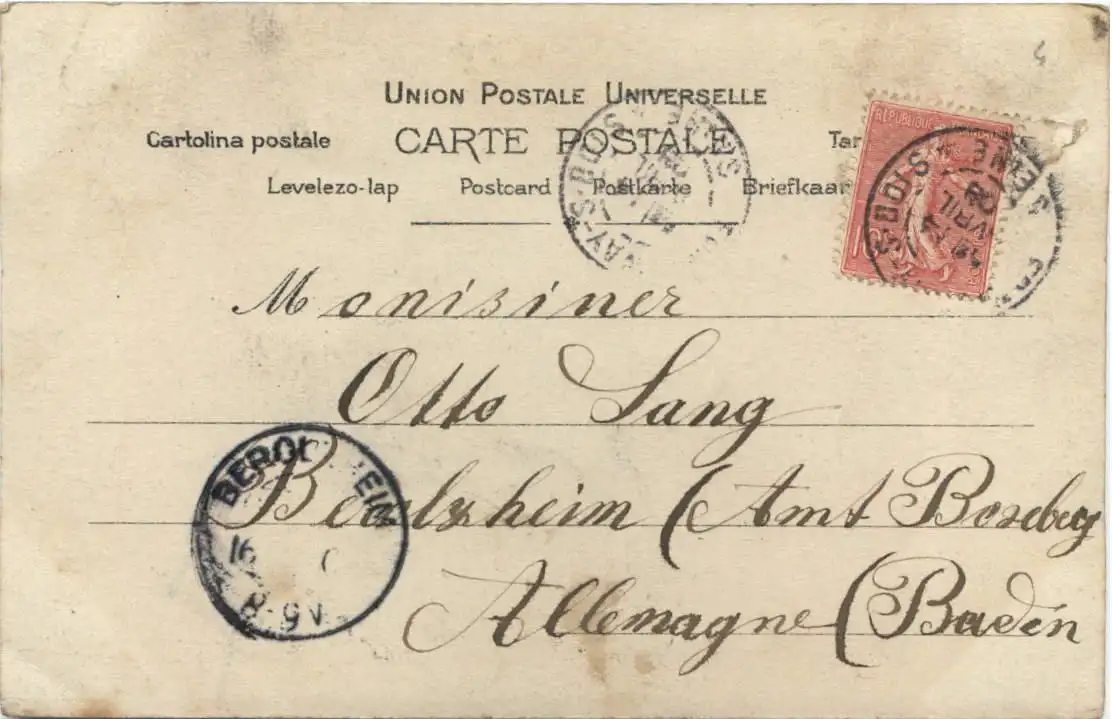 UNION POSTALE UNIVERSELLE
Cartolina postale CARTE POSTALE
Levelezo-lap Postcard Postkarte Briefkaar
REPUBLIQUE
AVRIL
Monisiner
Otto Lang
Berolzheim (Amt Boxberg
Allemagne (Baden
BEROL HEIM
16
8-9V